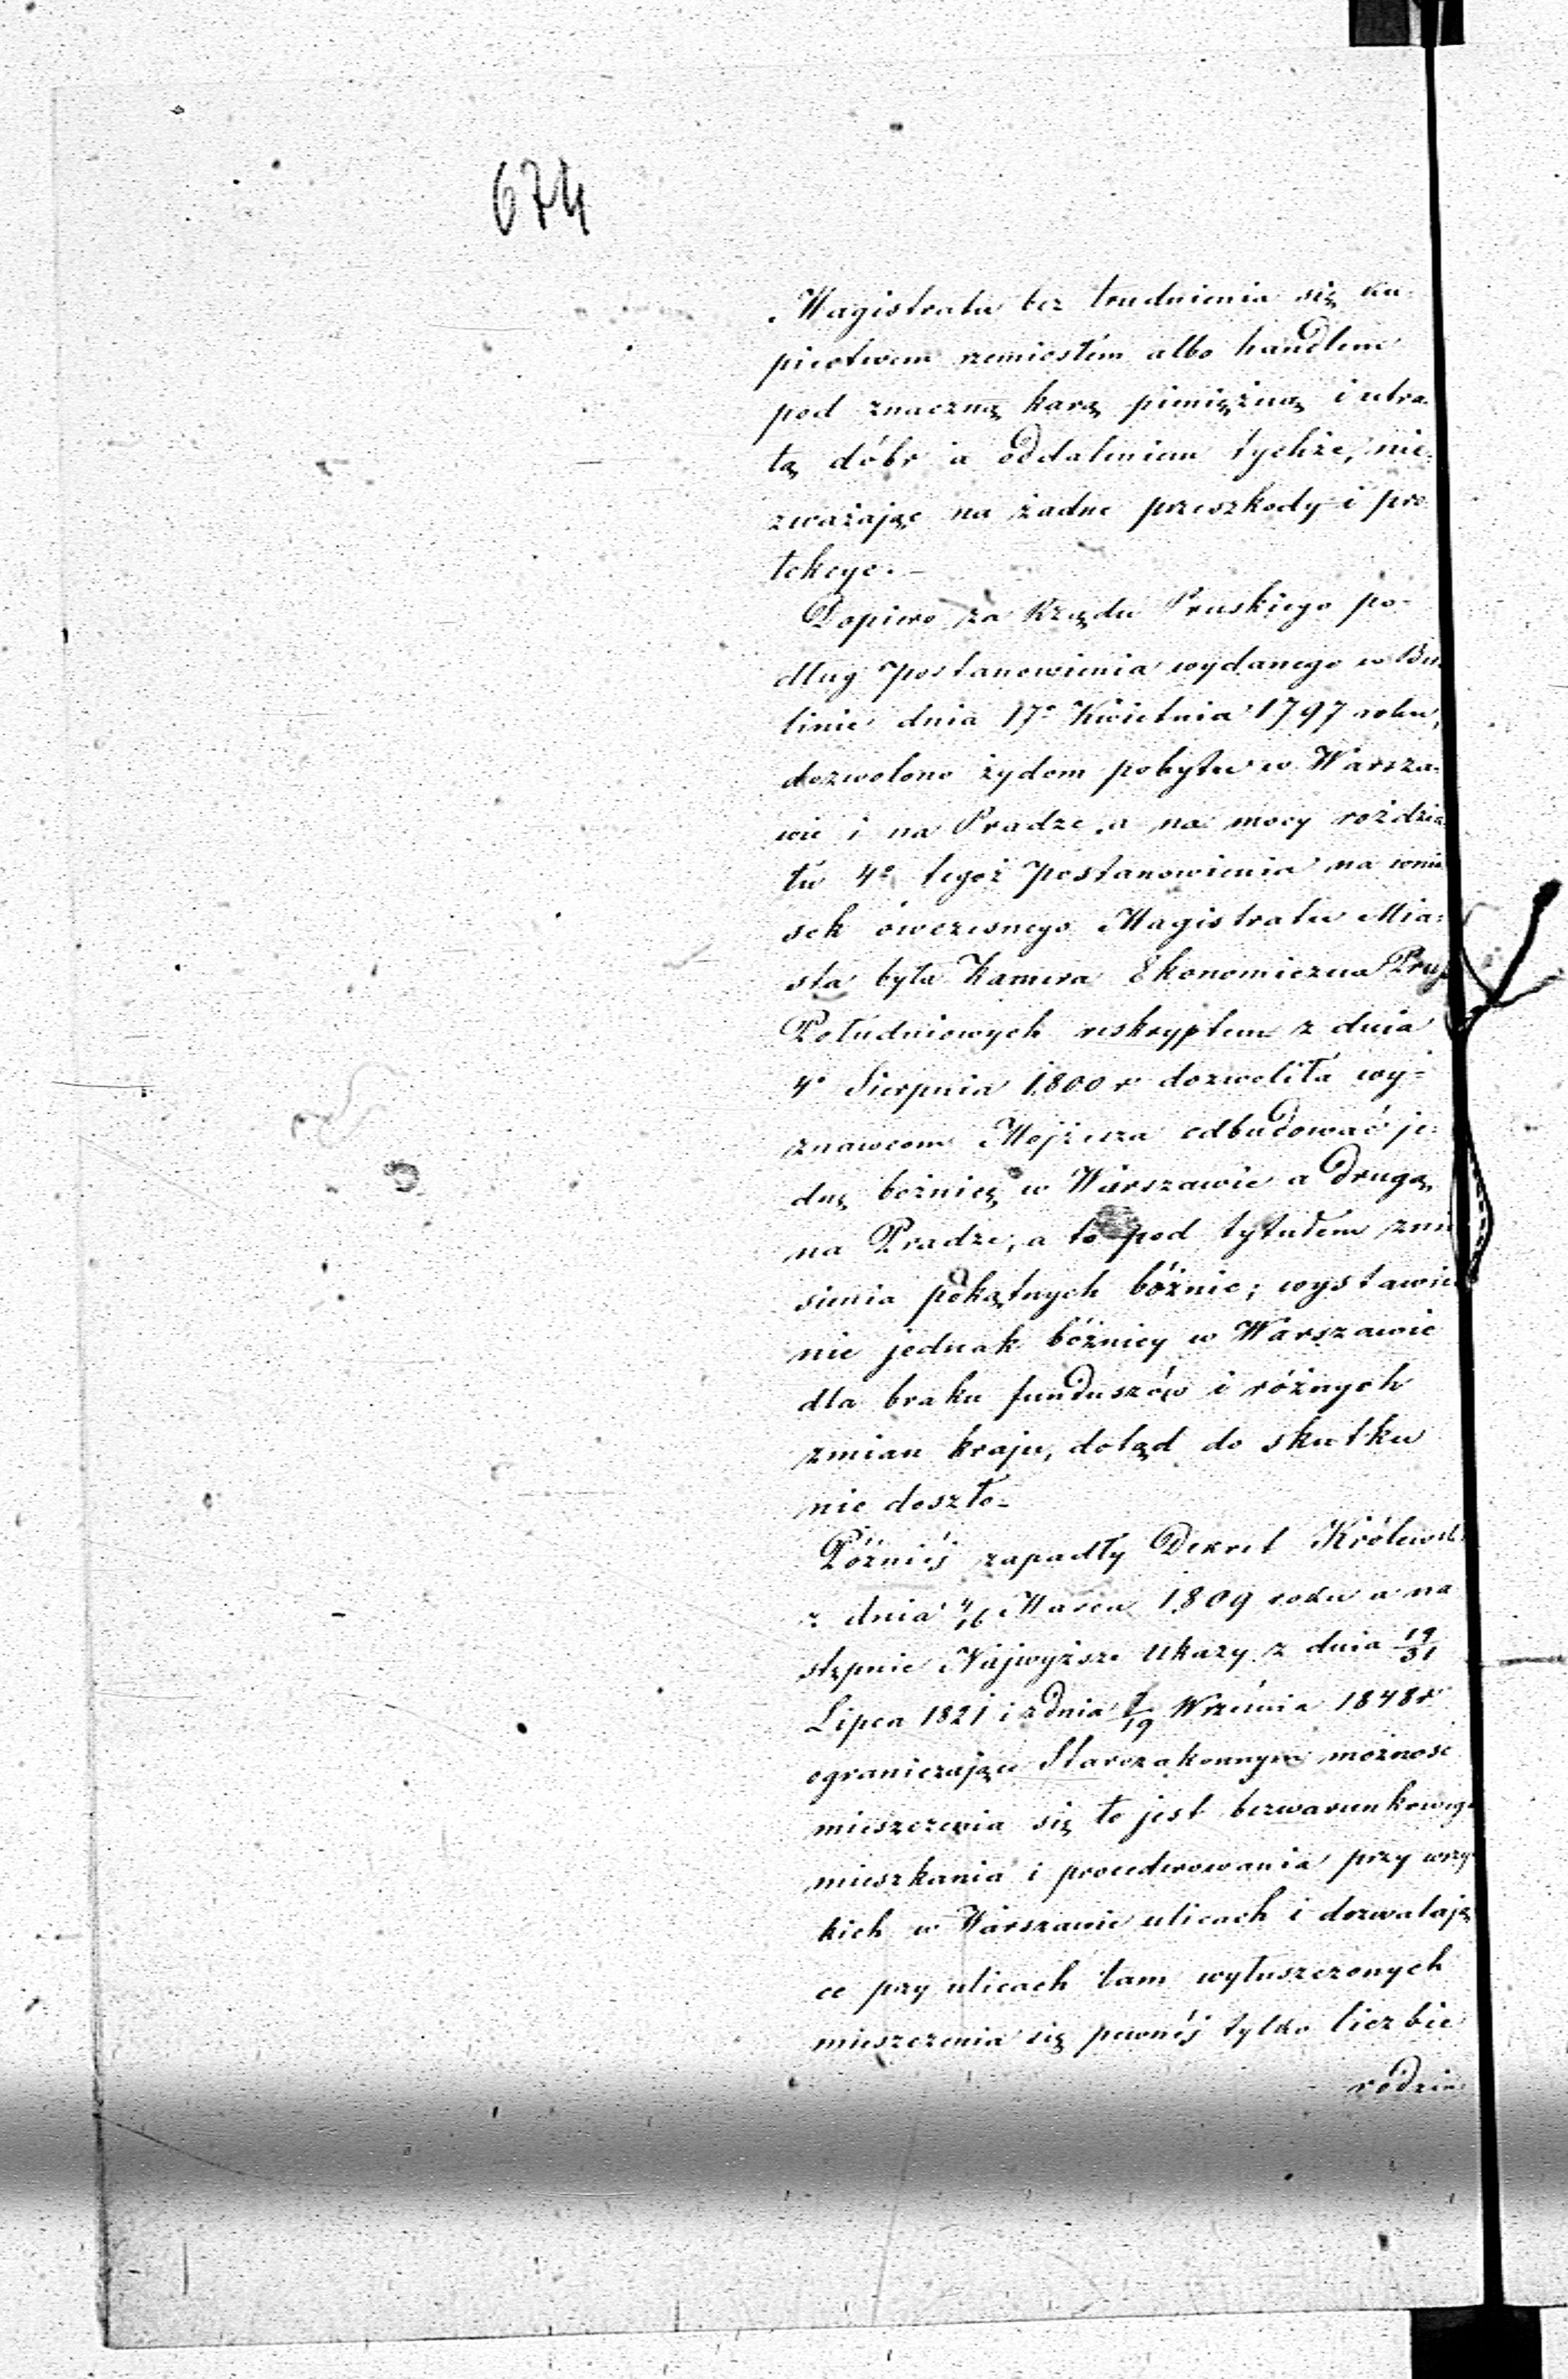 674
Magistratu bez trudnienia się ku-
piectwem rzemiosłem albo handlem
pod znaczną karą pieniężną i utra-
tą dóbr a oddaleniem tychże, nie-
zważając na żadne przeszkody i pro-
tekcye.-
Dopiero za Rządu Pruskiego po-
dług postanowienia wydanego w Ber-
linie dnia 17° Kwietnia 1797 roku,
dozwolono żydom pobytu w Warsza-
wie i na Pradze, a na mocy rozdzia
łu 4° tegoż postanowienia na wnio
sek ówczesnego Magistratu Mia-
sta była Kamera Ekonomiczna Prus
Południowych reskryptem z dnia
4° Sierpnia 1800 r dozwoliła wy-
znawcom Mojżesza odbudować je-
dną bożnicę w Warszawie a drugą
na Pradze, a to pod tytułem znie
sienia pokątnych bóżnic; wystawie
nie jednak bóżnicy w Warszawie
dla braku funduszów i różnych
zmian kraju, dotąd do skutku
nie doszło-
Późniéj zapadły Dekret Królewsk
z dnia 4/16 Marca 1809 roku a na
stępnie Najwyższe Ukazy z dnia 19/31
Lipca 1821 i z dnia 7/19 Września 1848 r
ograniczające Starozakonnym możność
mieszczenia się to jest bezwarunkowego
mieszkania i procederowania przy wszy
kich w Warszawie ulicach i dozwalają
ce przy ulicach tam wyłuszczonych
mieszczenia się pewnéj tylko liczbie
rodzin